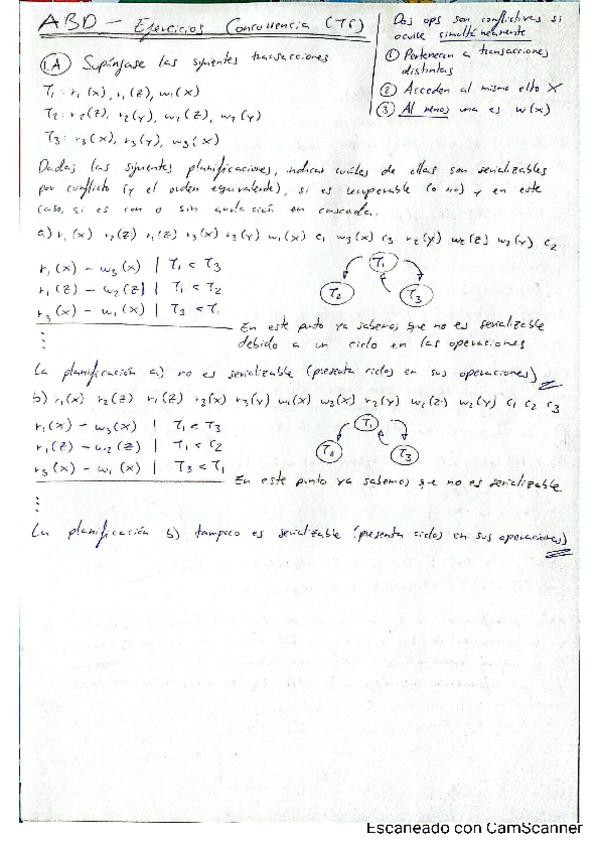 ABD - Ejercicios Concurrencia (T5)
Dos ops son conflictivas si
ocurre simultáneamente
① Pertenecen a transacciones
distintas
② Acceden al mismo elto X
③ Al menos una es w(x)
1.A Supóngase las siguientes transacciones
T1: r1(x), r1(z), w1(x)
T2: r2(z), r2(y), w2(z), w2(y)
T3: r3(x), r3(y), w3(x)
Dadas las siguientes planificaciones, indicar cuáles de ellas son serializables
por conflicto (y el orden equivalente), si es recuperable (o no) y en este
caso, si es con o sin anulación en cascada.
a) r1(x) r2(z) r1(z) r3(x) r3(y) w1(x) c1 w3(x) c3 r2(y) w2(z) w2(y) c2
r1(x) - w3(x) | T1 < T3
r1(z) - w2(z) | T1 < T2
r3(x) - w1(x) | T3 < T1
T1
T2
T3
En este punto ya sabemos que no es serializable
debido a un ciclo en las operaciones
La planificación a) no es serializable (presenta ciclos en sus operaciones)
b) r1(x) r2(z) r1(z) r3(x) r3(y) w1(x) w3(x) r2(y) w2(z) w2(y) c1 c2 c3
r1(x) - w3(x) | T1 < T3
r1(z) - w2(z) | T1 < T2
r3(x) - w1(x) | T3 < T1
T1
T2
T3
En este punto ya sabemos que no es serializable
La planificación b) tampoco es serializable (presenta ciclos en sus operaciones)
Escaneado con CamScanner